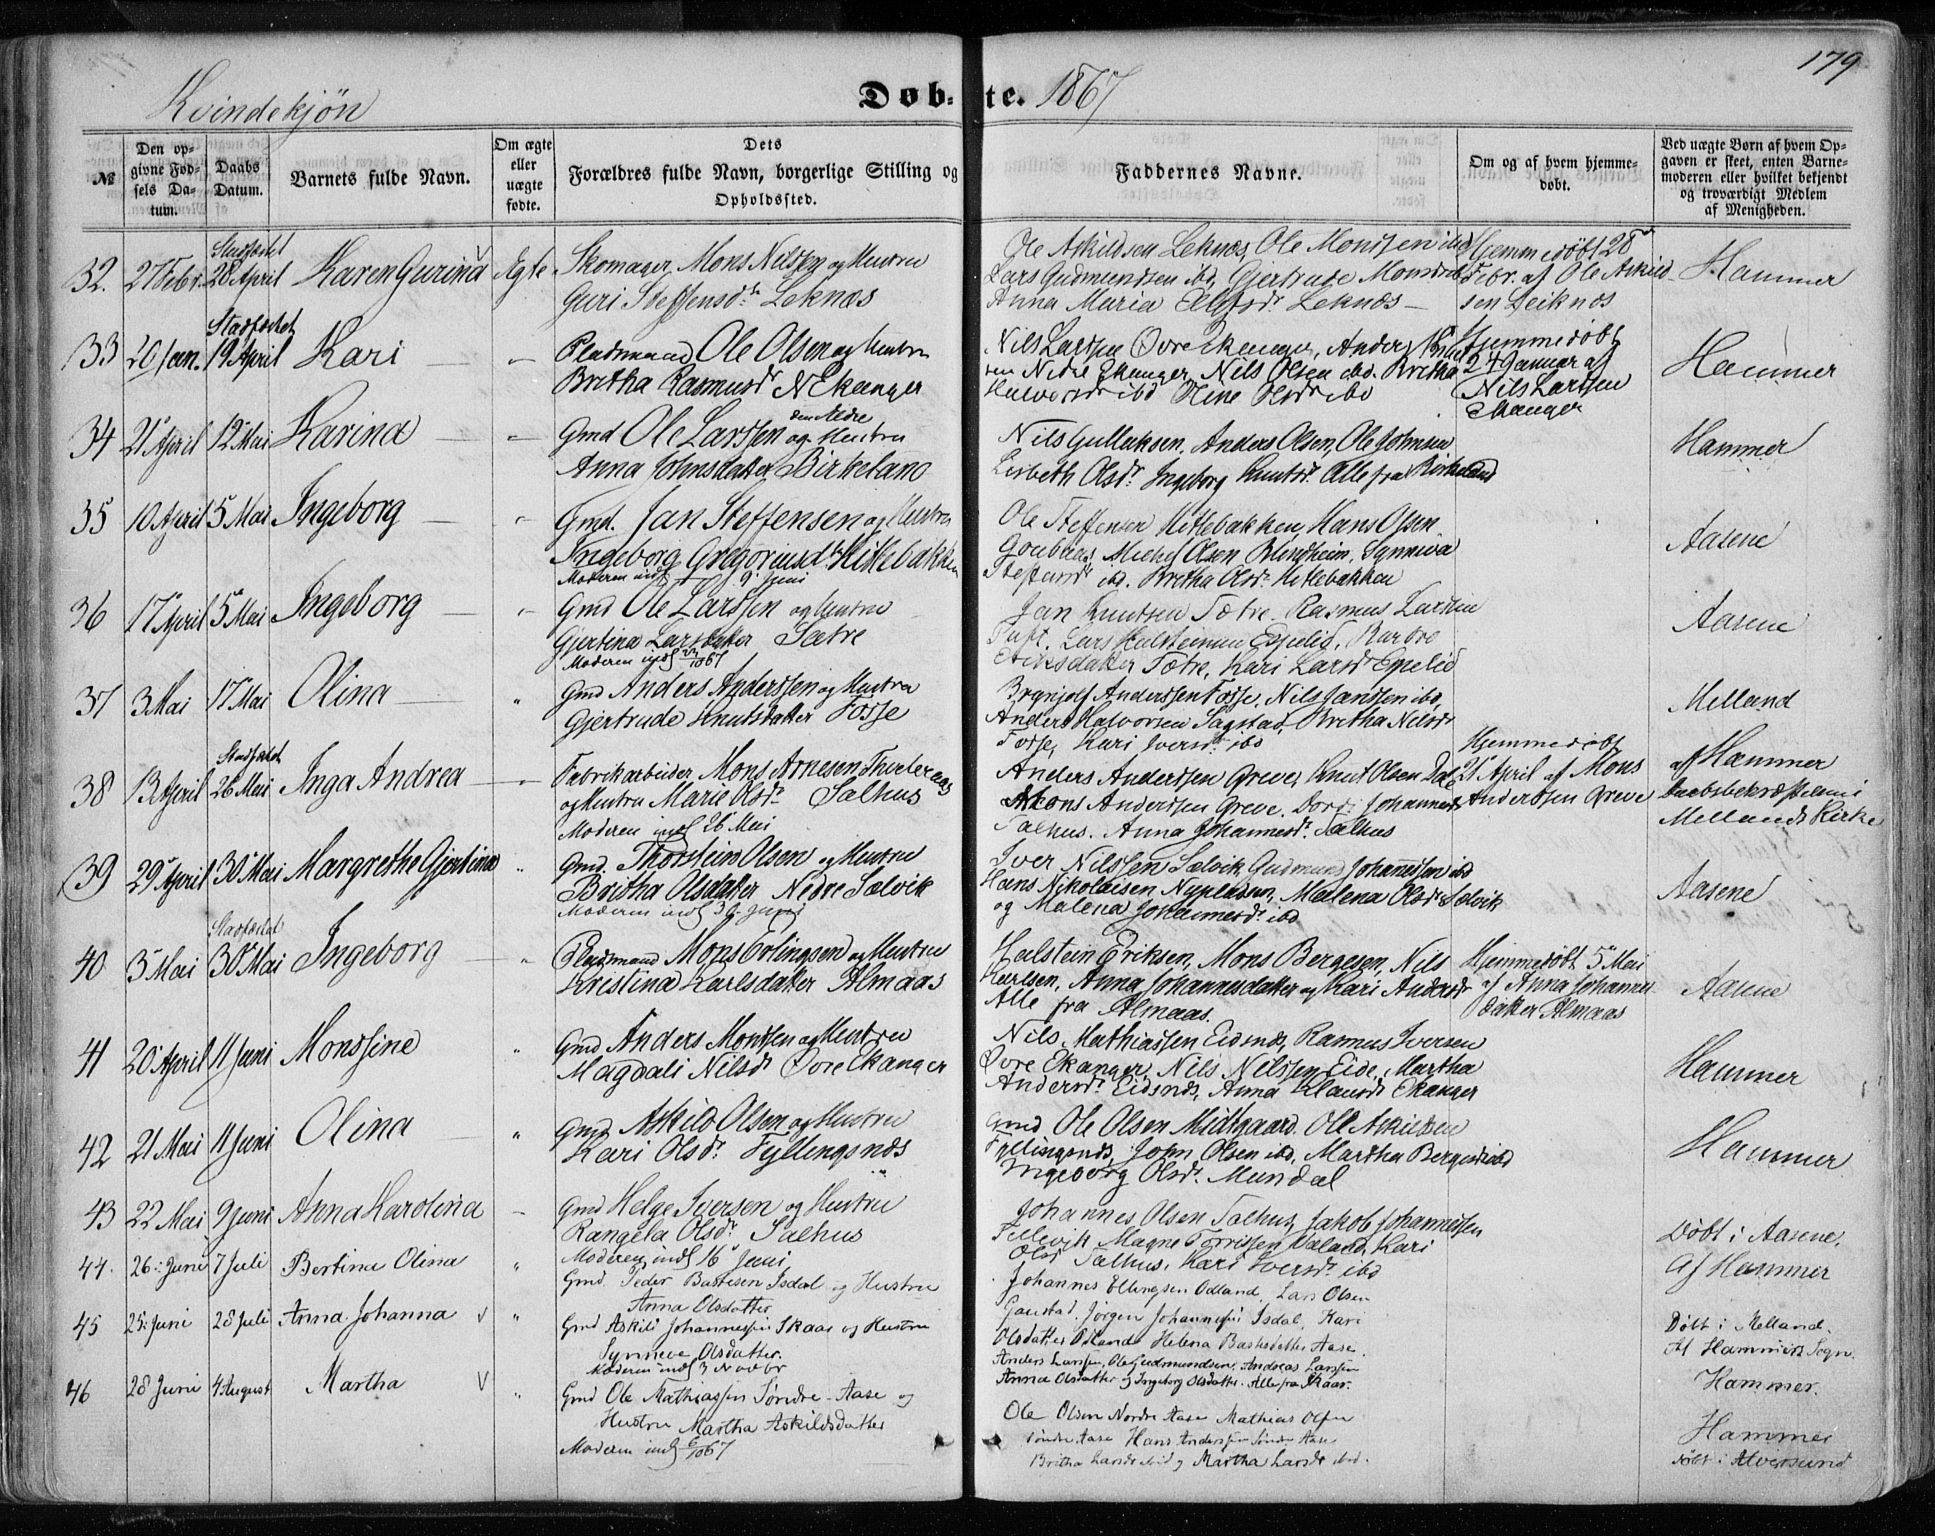 179
Kvindekjøn
Døb-te. 1867
№
Den opgivne Fødsels Datum.
Daabs Datum.
Barnets fulde Navn.
Om ægte eller uægte fødte.
Dets Forældres fulde Navn, borgerlige Stilling og Opholdssted.
Faddernes Navne.
Om og af hvem hjemmedøbt.
Ved uægte Børn af hvem Opgaven er skeet, enten Barnemoderen eller hvilket bekjendt og troværdigt Medlem af Menigheden.
32. 27 Febr. Stadfæstet 28 April Karen Gurina Ægte
Skomager Mons Nilsen og Hustru
Guri Steffensdr Leknæs
Ole Askildsen Leknæs, Ole Monssen ibd
Lars Gudmundsen ibd, Gjertrude Monsdr ibd
Anna Maria Leknæs
Hjemmedøbt 28
Febr. af Ole Askild-
sen Leiknæs
Hammer
33 20 Jan. Stadfæstet 19 April Kari
Pladsmand Ole Olsen og Hustru
Bretha Rasmusdr N Ekanger
Nils Larssen Øvre Ekanger, Anders
Nedre Ekanger, Nils Olsen ibd. Bretha
Halvorsdr ibd Stine Olsdr ibd
Hjemmedøbt
24 Januar af
Nils Larssen
Ekanger
Hammer
34 21 April 12 Mai Karina
Gmd Ole Larssen og Hustru
Anna Johnsdatter Birkeland
Nils Gullaksen, Anders Olsen, Ole Johnsen
Lisbeth Olsdr Ingeborg Knutsdr Alle fra Birkeland
Hammer
35 10 April 5 Mai Ingeborg
Gmd. Jan Steffensen og Hustru
Ingeborg Gregoriusdr Hitlebakken
Moderen indl 9 Juni
Ole Steffensen Hetlebakken, Hans Olsen
Michel Olsen Blindheim, Synneva
Steffensdr ibd. Bretha Olsdr Hetlebakken
Aasene
36 17 April 5 Mai Ingeborg
Gmd Ole Larssen og Hustru
Gjertina Larsdatter Sætre
Moderen indl
Jan Knutsen Sætre, Rasmus Larssen
Tuft, Lars Halsteinsen Espelid, Barbro
Eriksdatter Sætre, Kari Larsdr Espelid
Aasene
37 3 Mai 17 Mai Olina
Gmd Anders Anderssen og Hustru
Gjertrude Knutsdatter Fosse
Brynjolf Anderssen Fosse, Nils Janssen ibd,
Anders Halvorsen Sagstad, Bretha Nilsdr
Fosse, Kari Iversdr ibd
Melland
38 13 April Stadfæstet 26 Mai Inga Andrea
Fabrikarbeider Mons Arnesen Tveteraas
og Hustru Marie Olsdr Salhus
Moderen indl 26 Mai
Anders Anderssen Greve, Knut Olsen Dale
Mons Anderssen Greve, Dorthe Johannesdr
Salhus. Anna Johannesdr Salhus
Hjemmedøbt
21 April af Mons
Anderssen Greve
af Hammer
Daabsbekræftelsen i
Mellands Kirke
39 29 April 30 Mai Margrethe Gjertina
Gmd. Thorstein Olsen og Hustru
Bretha Olsdatter Nedre Sælvik
Iver Nilssen Sælvik, Gudmund Johannessen ibd
Hans Nikolaisen Nypladsen, Malena Olsdr Sælvik
og Malena Johannesdr ibd
Aasene
40 3 Mai Stadfæstet 30 Mai Ingeborg
Pladsmand Mons Erlingsen og Hustru
Kristina Karlsdatter Almaas
Halstein Eriksen, Mons Bergesen, Nils
Karlsen, Anna Johannesdatter og Kari Andersdr
Alle fra Almaas.
Hjemmedøbt 5 Mai
af Anna Johannes
datter Almaas
Aasene
41 20 April 11 Juni Monssine
Gmd Anders Monssen og Hustru
Magdali Nilsdr Øvre Ekanger
Nils Mathiassen Eidsnæs, Rasmus Iversen
Øvre Ekanger, Nils Nilssen Eide, Martha
Andersdr Eidsnæs, Anna Klausdr Ekanger
Hammer
42 21 Mai 11 Juni Olina
Gmd Askild Olsen og Hustru
Kari Olsdr Fyllingsnæs
Gmd Ole Olsen Midtgaard, Ole Askildsen
Fyllingsnæs, John Olsen ibd, Martha Bergesdr ibd
Ingeborg Olsdr Mundal
Hammer
43 22 Mai 9 Juni Anna Karolina
Gmd Helge Iversen og Hustru
Rangela Olsdr Salhus
Moderen indl 16 Juni
Johannes Olsen Salhus, Jakob Johannessen
Magne Torrissen Kari
Olsdr Salhus, Kari Iversdr ibd
Døbt i Aasene.
44. 26. Juni 7 Juli Bertina Olina
Gmd. Peder Bastesen Isdal og Hustru
Anna Olsdatter
Johannes Ellingsen Odland, Lars Olsen
Gaustad, Jørgen Johannessen Isdal, Kari
Olsdatter Odland Helena Bastesdatter Aase.
Af Hammer
45 25. Juni 28 Juli Anna Johanna
Gmd Askild Johannessen Skaar og Hustru
Synneve Olsdatter.
Moderen indl 3 Novbr
Anders Larssen, Ole Gudmundsen, Andreas Larssen
Anna Olsdatter og Ingeborg Olsdatter. Alle fra Skaar.
Døbt i Melland.
Af Hammers Sogn.
46 28 Juni 4 August Martha
Gmd Ole Mathiassen Søndre-Aase og
Hustru Martha Askildsdatter
Moderen indl 6/10 67
Ole Olsen Nordre Aase Mathias Olsen
Søndre Aase Hans Anderssen Søndre Aase
Britha Larsdr ibid og Martha Larsdr ibd.
Hammer.
Hammer
døbt i Alversund